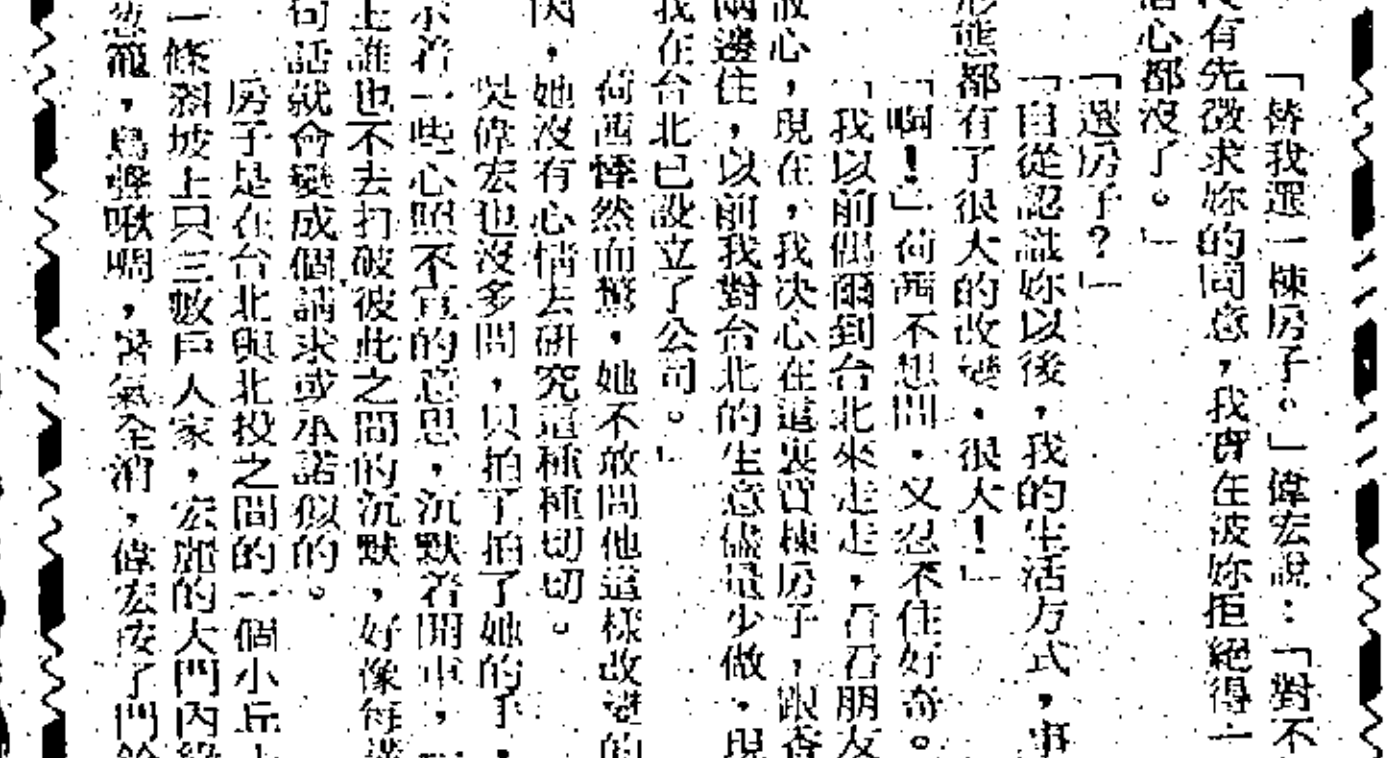 「替我選一棟房子。」偉宏說：「對不
有先徵求妳的同意，我實在被妳拒絕得一
心都沒了。」
「選房子？」
「自從認識妳以後，我的生活方式，事
形態都有了很大的改變，很大！」
「啊！」荷西不想問，又忍不住好奇。
「我以前偶爾到台北來走走，看看朋友
放心，現在，我決心在這裏買棟房子，跟香
兩邊住，以前我對台北的生意儘量少做，現
我在台北已設立了公司。」
荷西悚然而驚，她不敢問他這樣改變的
閃，她沒有心情去研究這種種切切。
吳偉宏也沒多問，只拍了拍了她的手，
示着一些心照不宣的意思，沉默着開車，
上誰也不去打破彼此之間的沉默，好像每講
句話就會變成個請求或承諾似的。
房子是在台北與北投之間的一個小丘上
一條斜坡上只三數戶人家，宏麗的大門內綠
蔥蘢，鳥聲啾啁，暑氣全消，偉宏按了門鈴